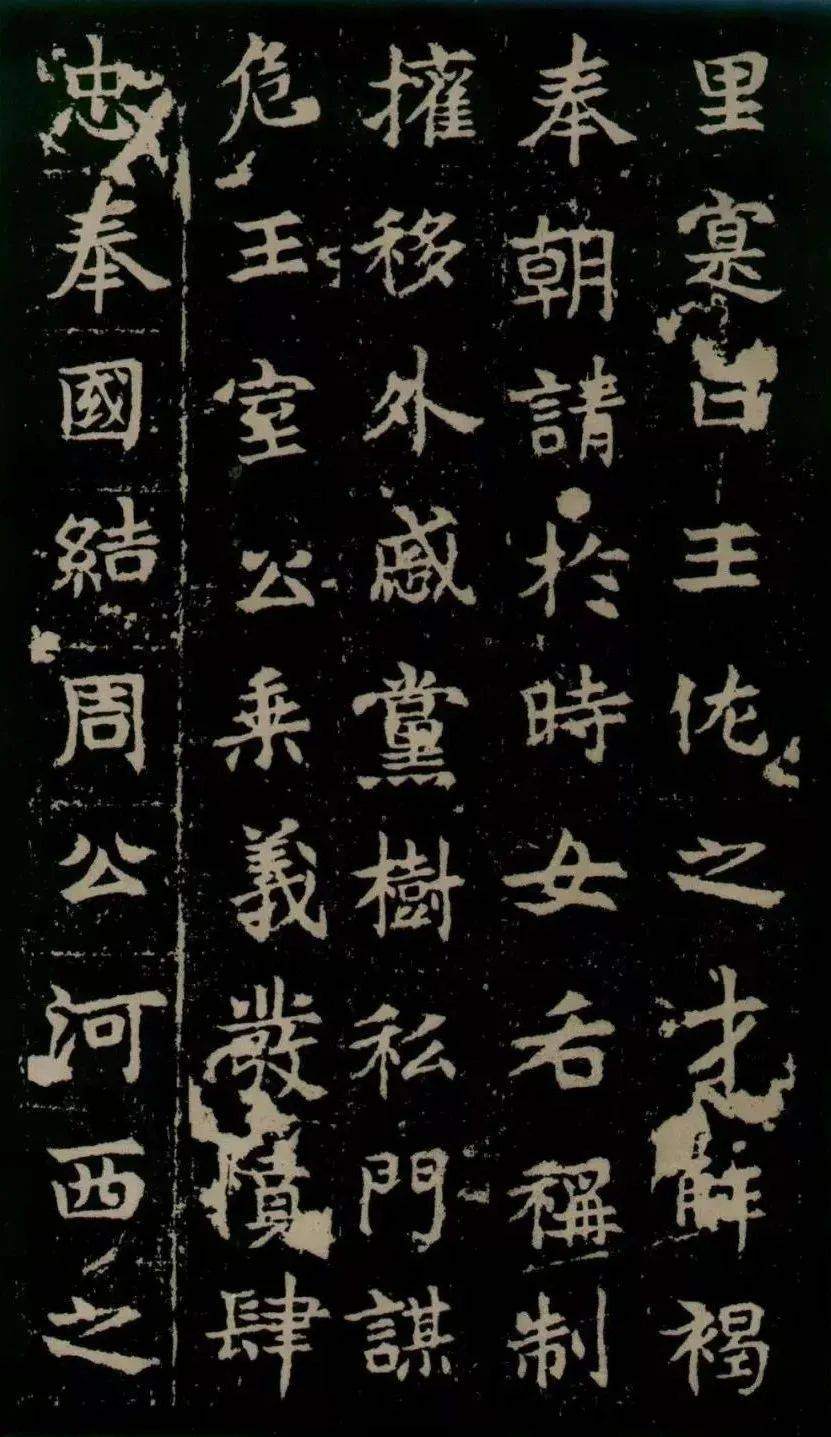 里寔曰王佐之才解褐
奉朝請於時女君稱制
擁移外戚黨樹私門謀
危王室公乗義發憤肆
忠奉國結周公河西之